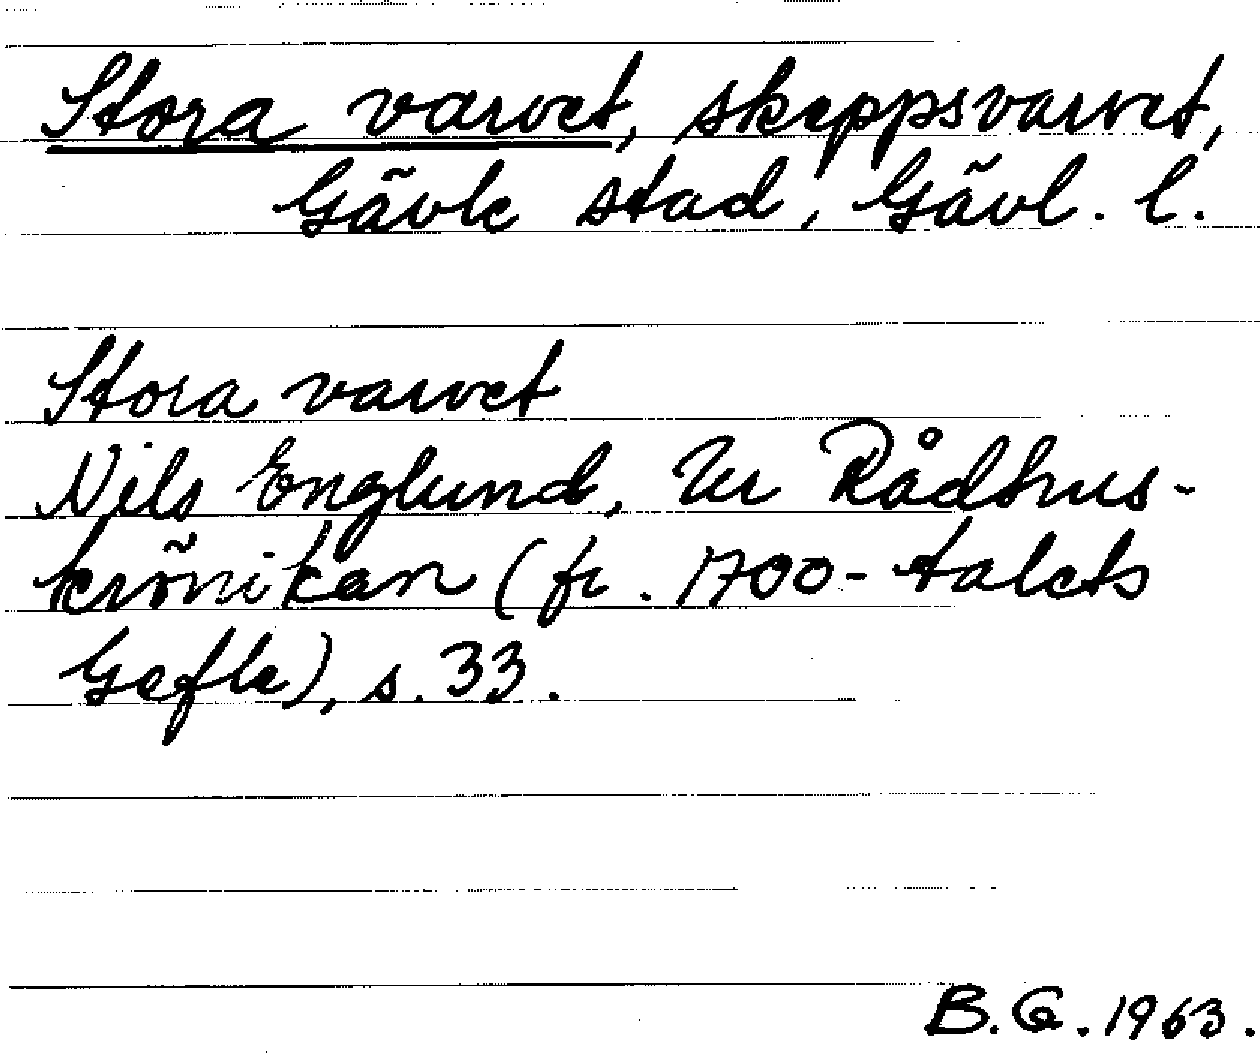 Stora varvet, skeppsvarvet,
Gävle stad, Gävl. l.
Stora varvet
Nils Englund, Ur Rådhus-
krönikan (fr. 1700-talets
Gefle), s. 33.
B.G. 1963.